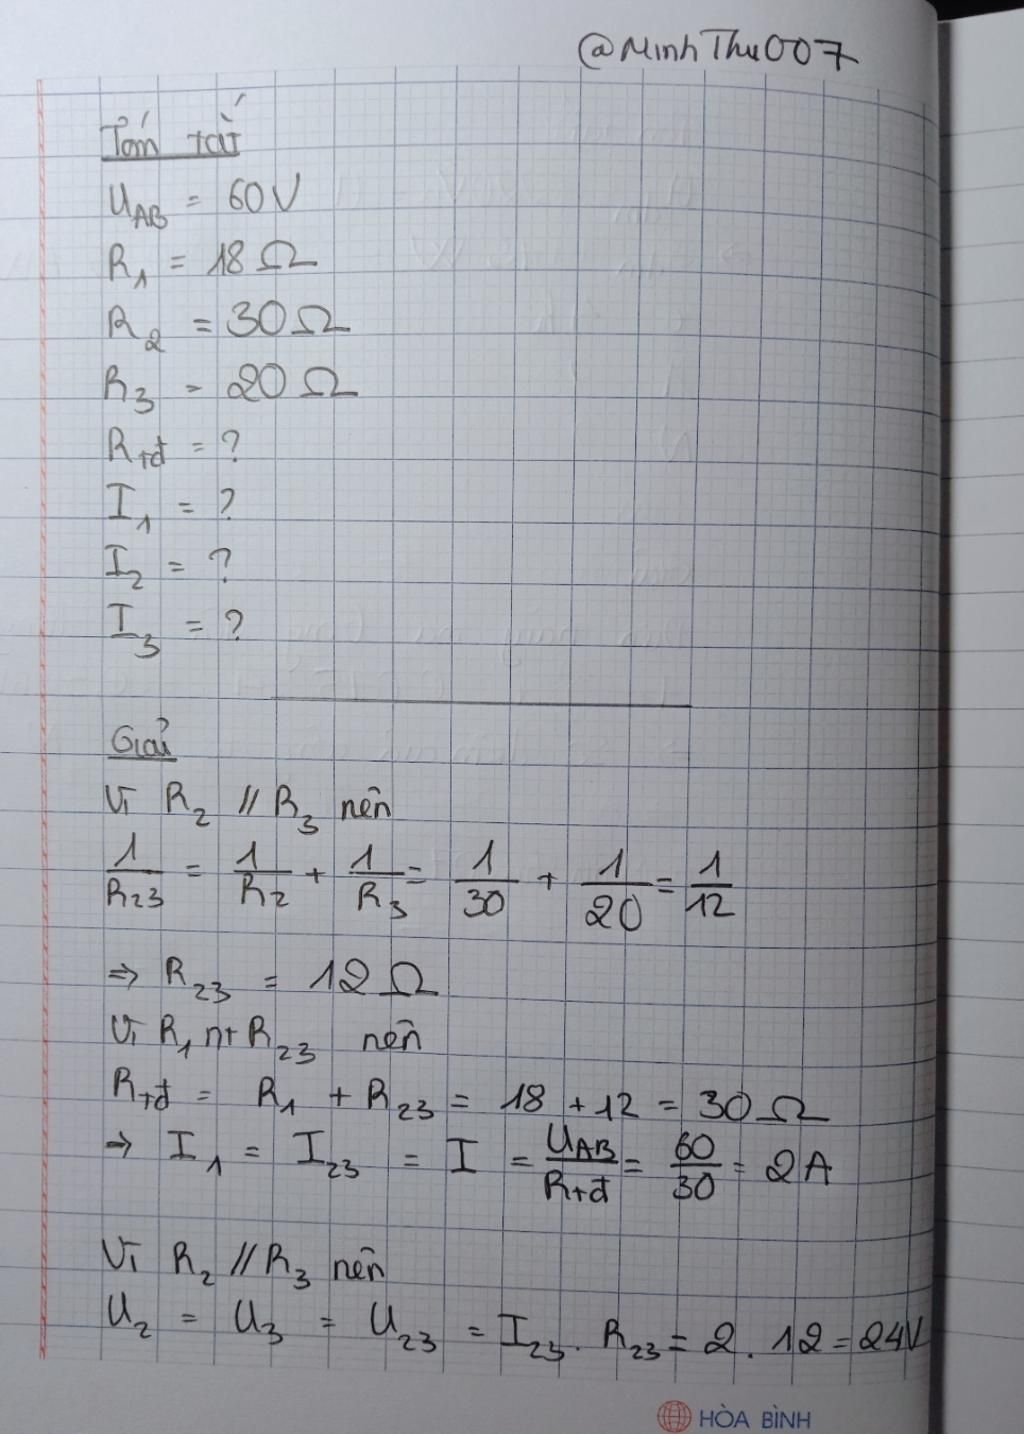 @MinhThu007
Tóm tắt
U_AB = 60V
R_1 = 18 Ω
R_2 = 30 Ω
R_3 = 20 Ω
R_tđ = ?
I_1 = ?
I_2 = ?
I_3 = ?
Giải
Vì R_2 // R_3 nên
1/R_23 = 1/R_2 + 1/R_3 = 1/30 + 1/20 = 1/12
⇒ R_23 = 12 Ω
Vì R_1 nt R_23 nên
R_tđ = R_1 + R_23 = 18 + 12 = 30 Ω
⇒ I_1 = I_23 = I = U_AB/R_tđ = 60/30 = 2A
Vì R_2 // R_3 nên
U_2 = U_3 = U_23 = I_23 . R_23 = 2 . 12 = 24V
HÒA BÌNH